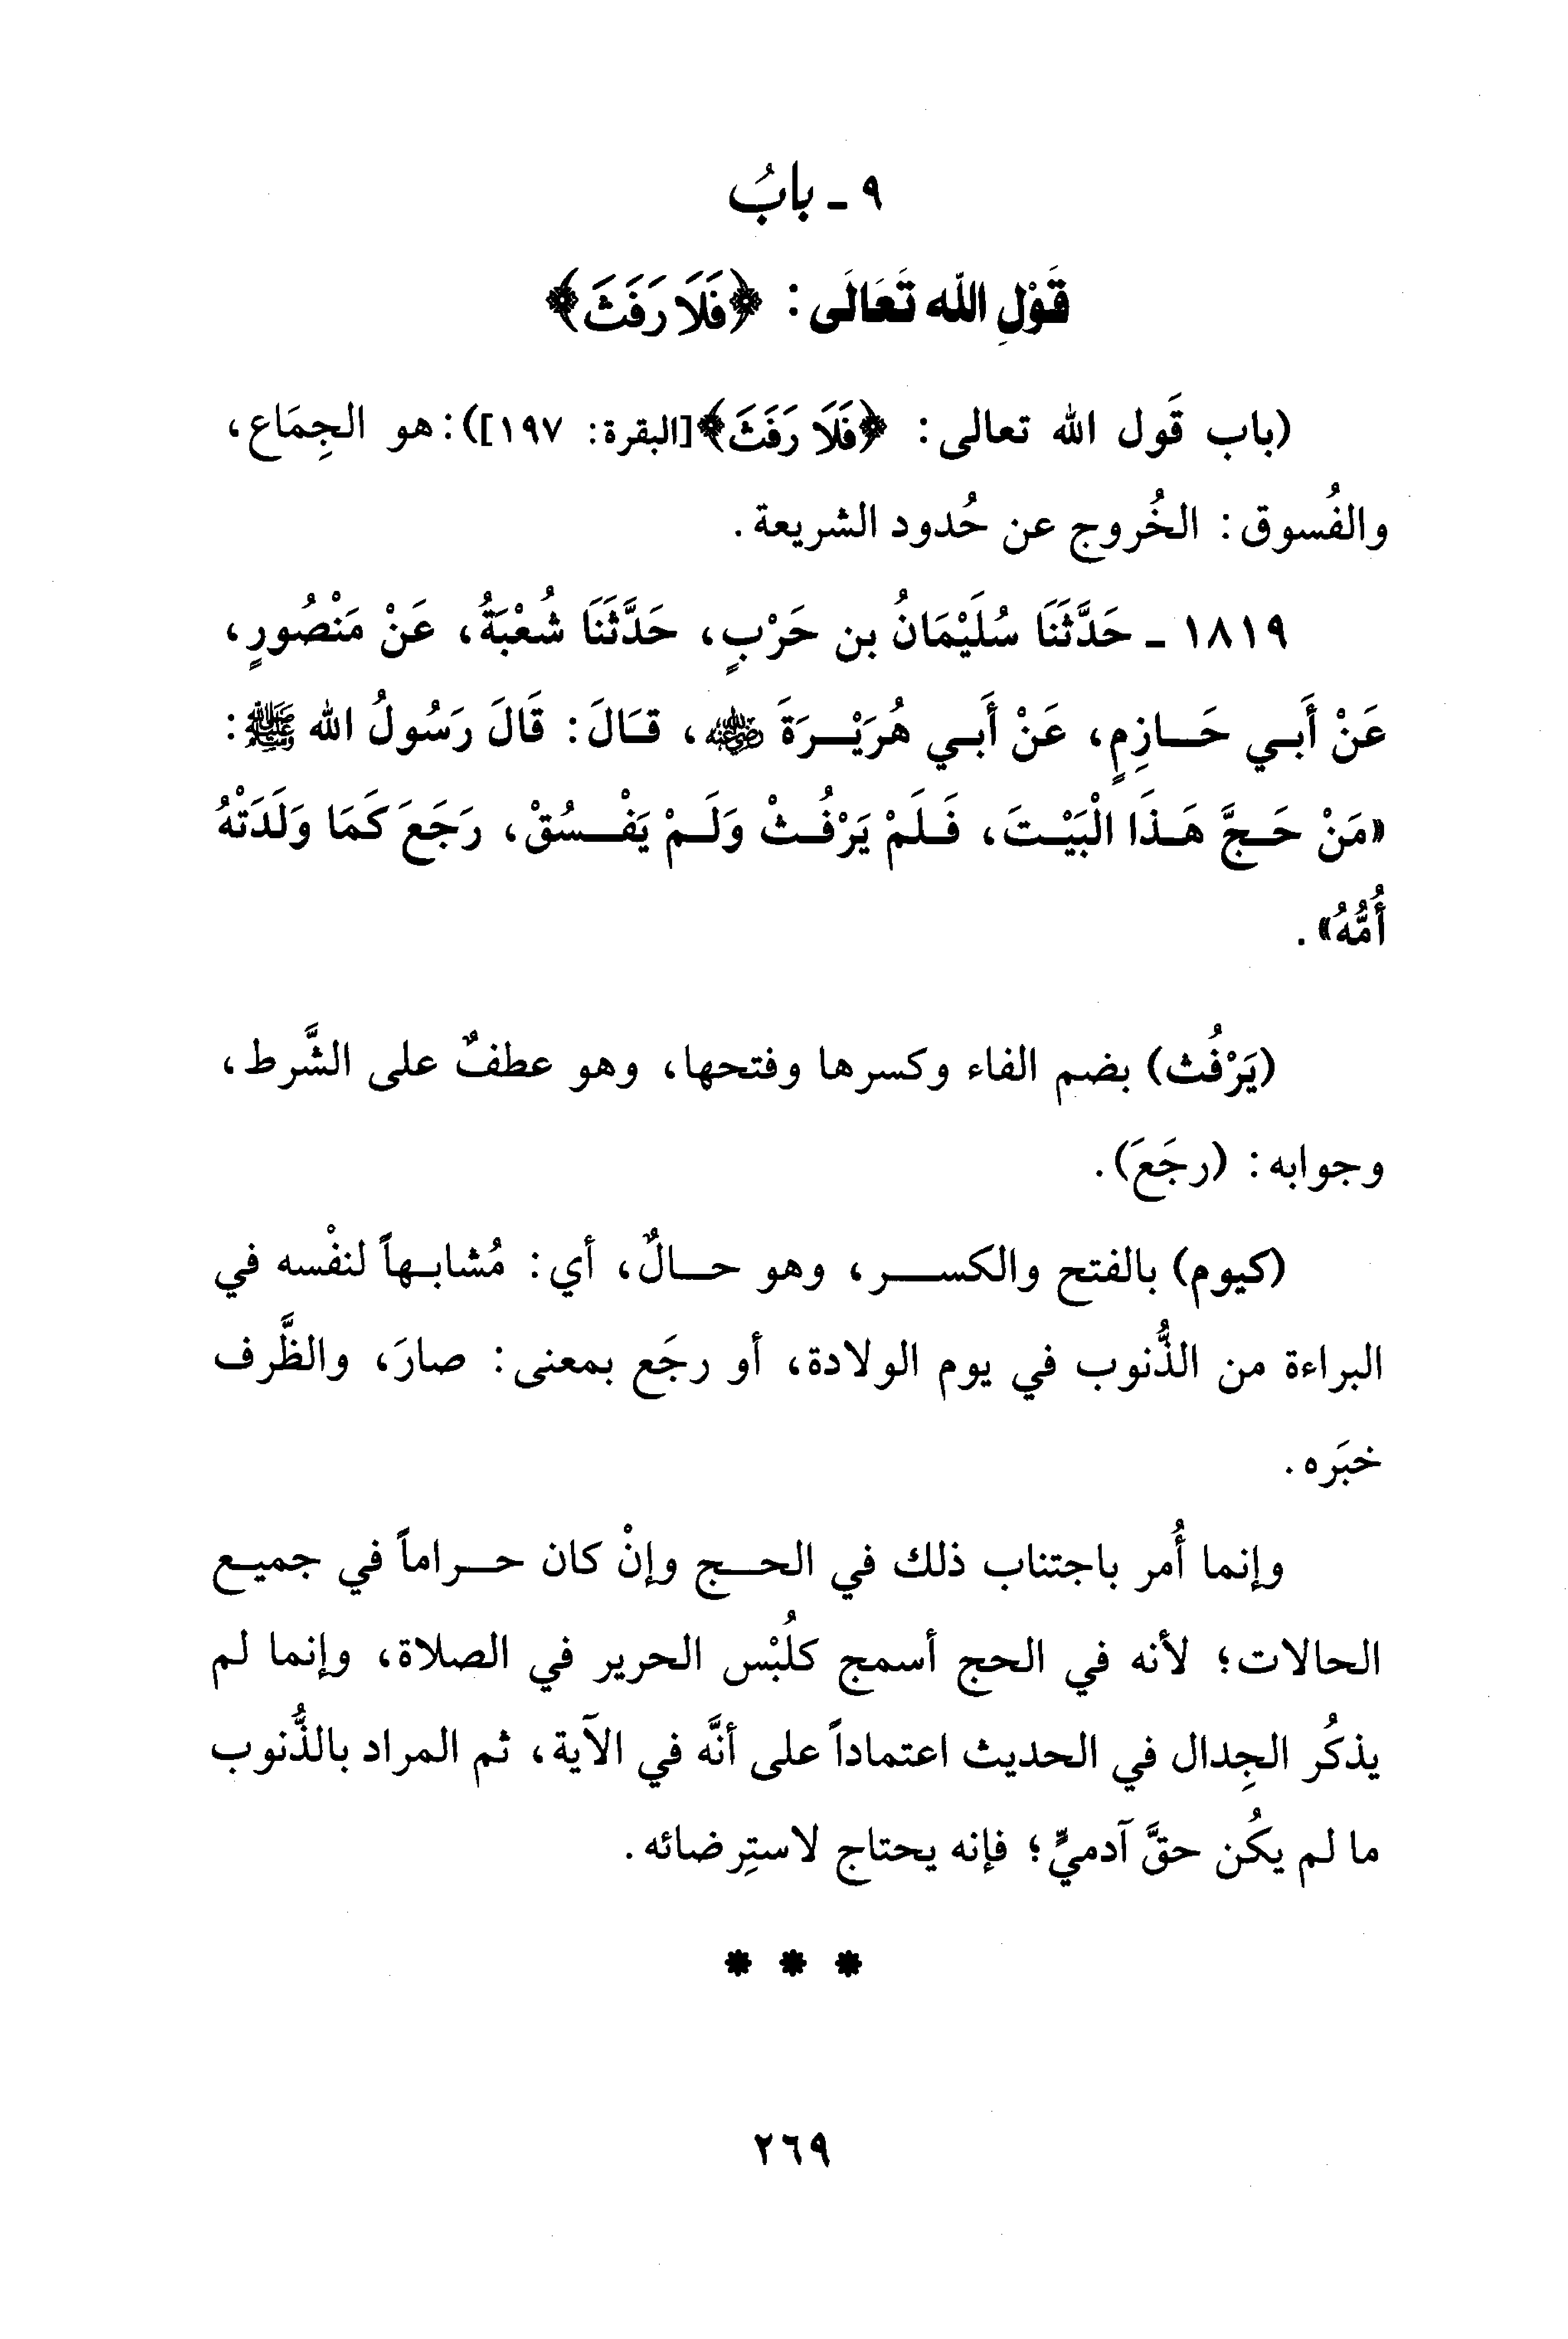 ٩ - بابُ
قَوْلِ الله تَعَالَى: ﴿فَلَا رَفَثَ﴾
(باب قَول الله تعالى: ﴿فَلَا رَفَثَ﴾[البقرة: ١٩٧]): هو الجِمَاع،
والفُسوق: الخُروج عن حُدود الشريعة.
١٨١٩ - حَدَّثَنَا سُلَيْمَانُ بن حَرْبٍ، حَدَّثَنَا شُعْبَةُ، عَنْ مَنْصُورٍ،
عَنْ أَبي حَازِمٍ، عَنْ أَبي هُرَيْرَةَ رضي الله عنه، قَالَ: قَالَ رَسُولُ الله ﷺ:
«مَنْ حَجَّ هَذَا الْبَيْتَ، فَلَمْ يَرْفُثْ وَلَمْ يَفْسُقْ، رَجَعَ كَمَا وَلَدَتْهُ
أُمُّهُ».
(يَرْفُث) بضم الفاء وكسرها وفتحها، وهو عطفٌ على الشَّرط،
وجوابه: (رجَعَ).
(كيوم) بالفتح والكسر، وهو حالٌ، أي: مُشابهاً لنفْسه في
البراءة من الذُّنوب في يوم الولادة، أو رجَع بمعنى: صارَ، والظَّرف
خبَره.
وإنما أُمر باجتناب ذلك في الحج وإنْ كان حراماً في جميع
الحالات؛ لأنه في الحج أسمج كلُبْس الحرير في الصلاة، وإنما لم
يذكُر الجِدال في الحديث اعتماداً على أنَّه في الآية، ثم المراد بالذُّنوب
ما لم يكُن حقَّ آدميٍّ؛ فإنه يحتاج لاستِرضائه.
* * *
٢٦٩